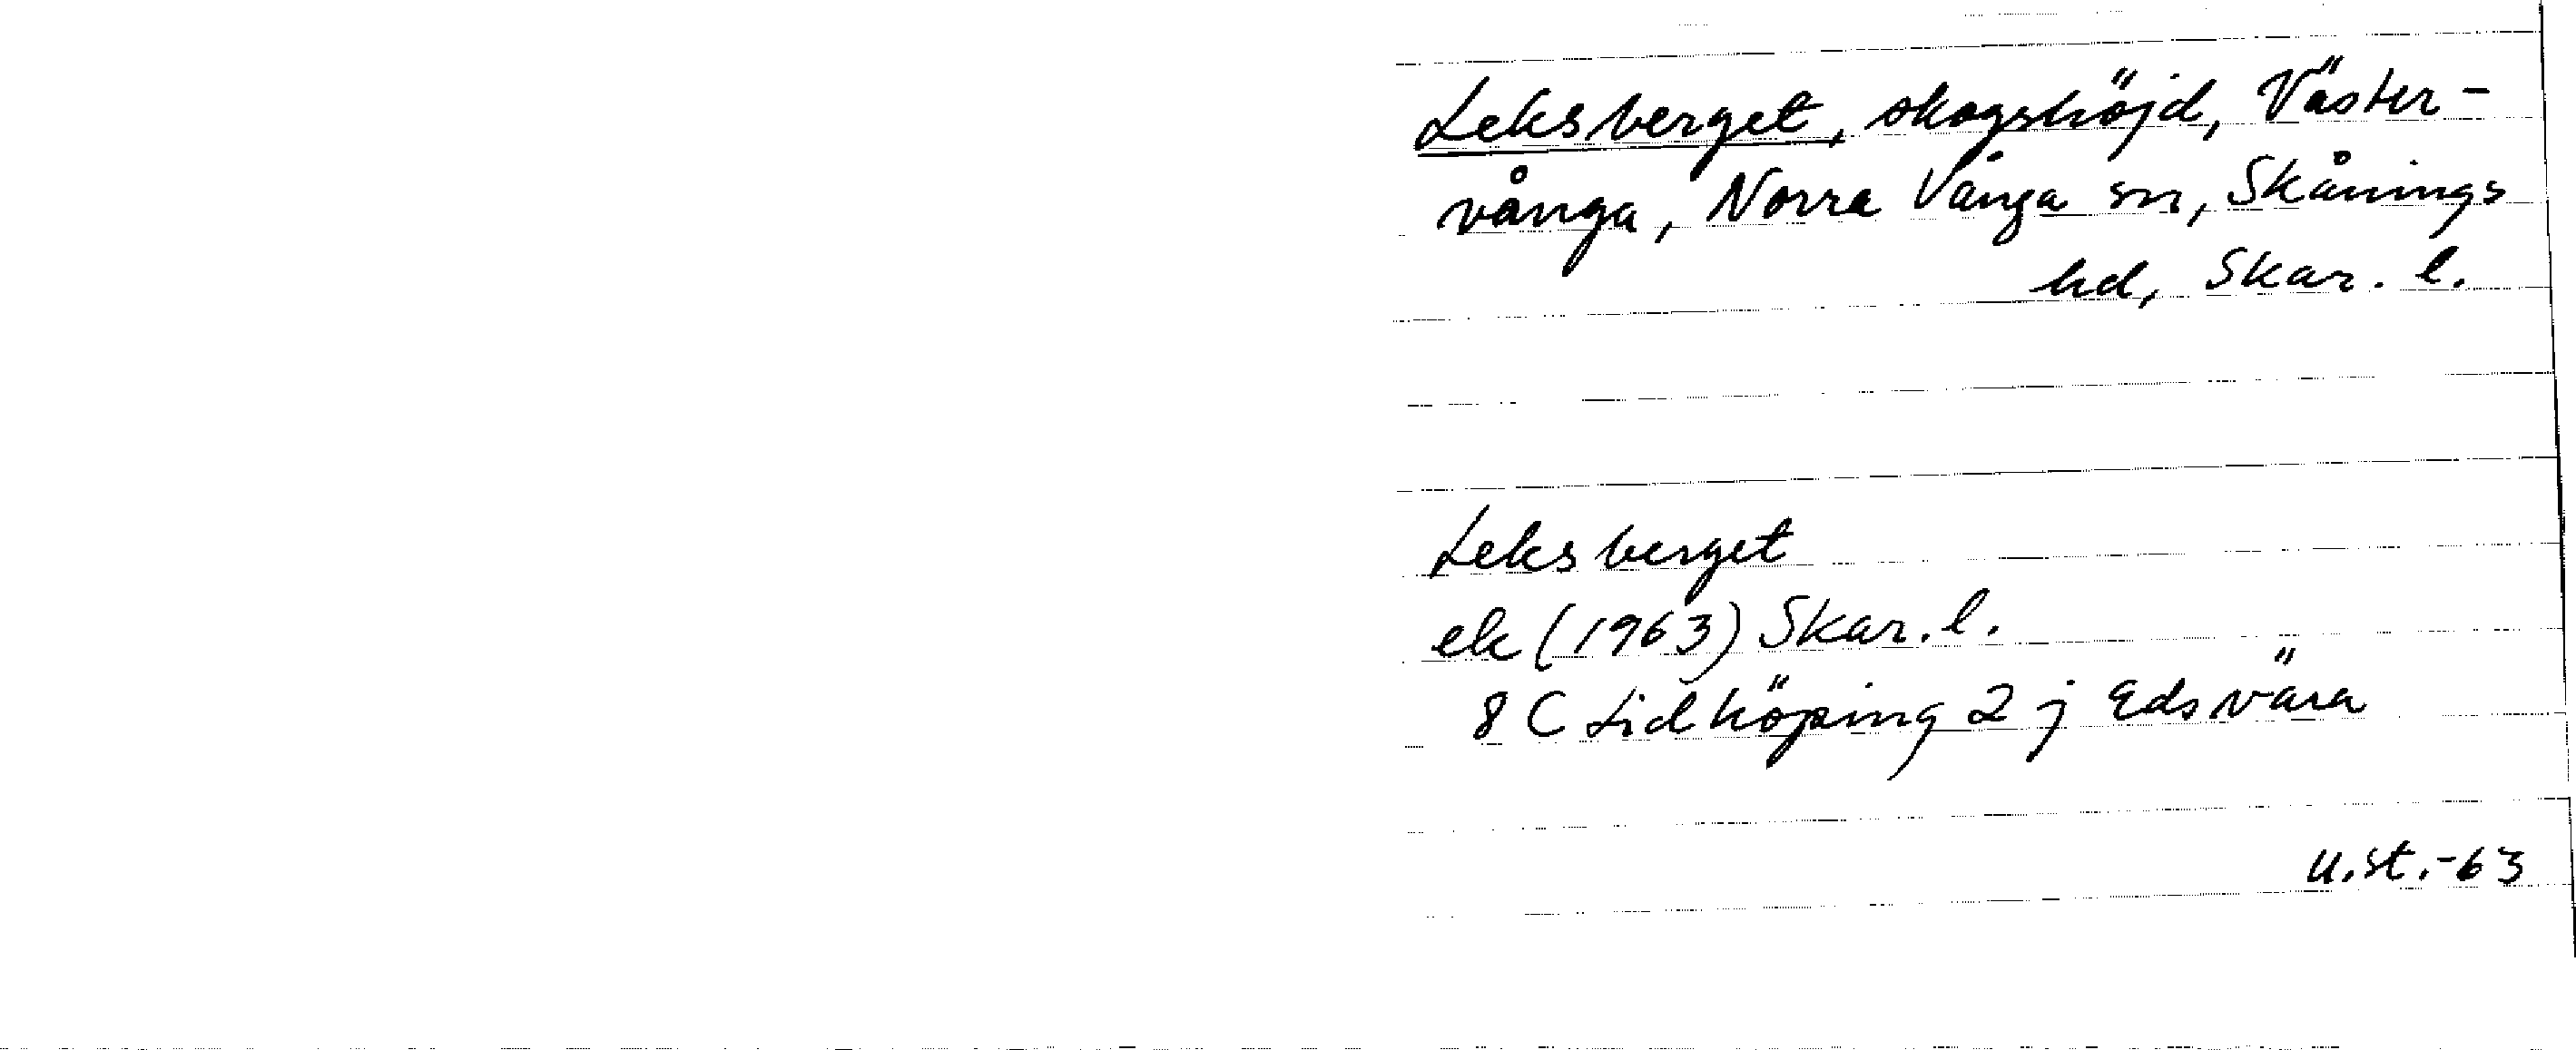 Leksberget, skogshöjd, Väster-
vånga, Norra Vånga sn, Skånings
hd, Skar. l.
Leksberget
ek (1963) Skar. l.
8 C Lidköping 2 j Edsvära
U.st.-63